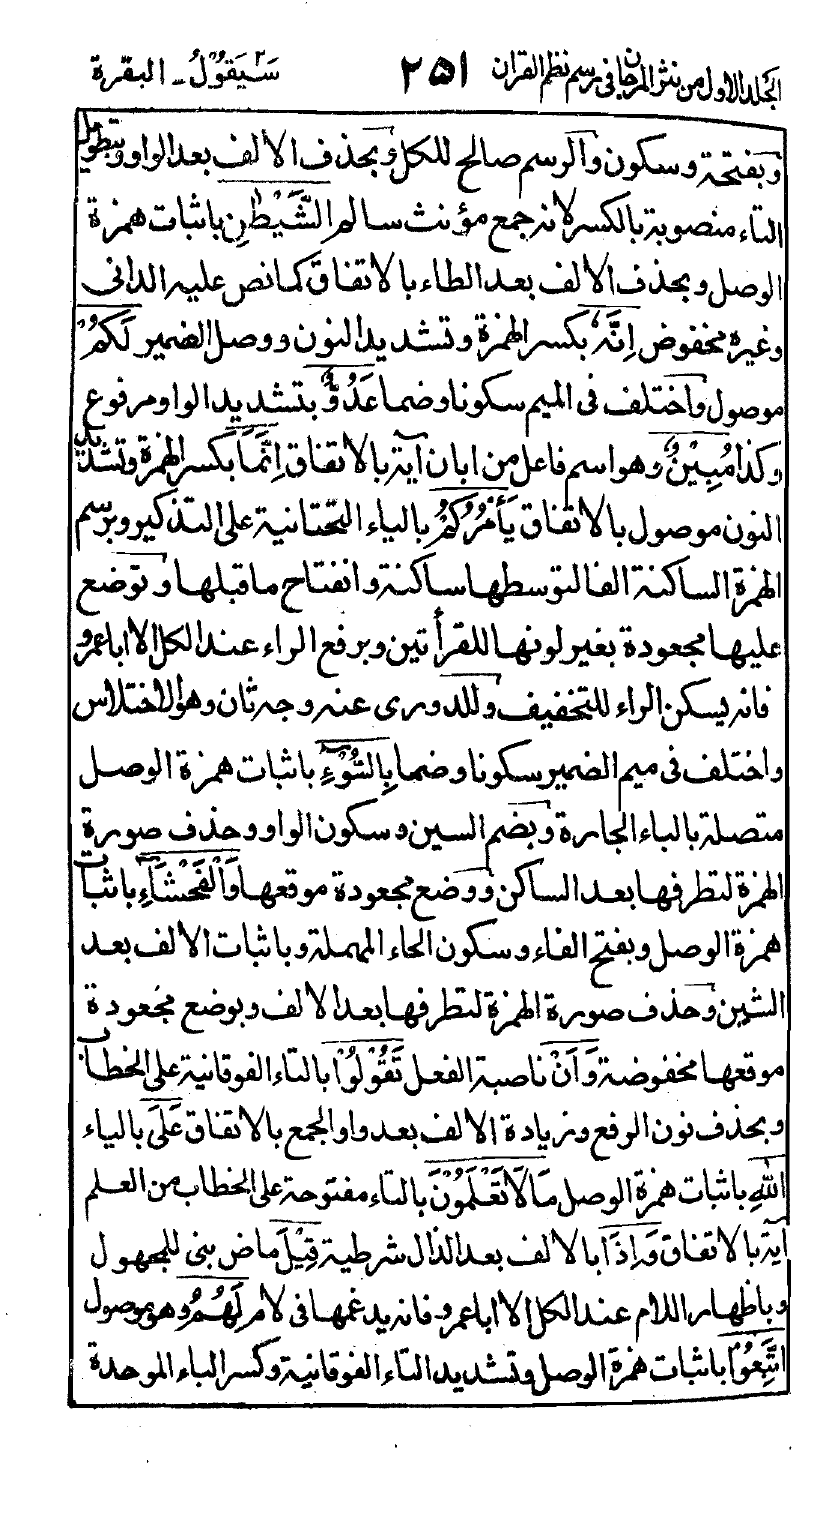 الجلد الاول من نثر المرجان في رسم نظم القران ٢٥١ سَيَقُولُ - البقرة
وبفتحة وسكون والرسم صالح للكل وبحذف الالف بعد الواو وتطويل
التاء منصوبة بالكسر لانه جمع مؤنث سالم الشَّيْطٰنِ باثبات همزة
الوصل وبحذف الالف بعد الطاء بالاتفاق كما نص عليه الدانى
وغيره مخفوض اِنَّهُ بكسر الهمزة وتشديد النون ووصل الضمير لَكُمْ
موصول واختلف فى الميم سكونا وضما عَدُوٌّ بتشديد الواو مرفوع
وكذا مُبِيْنٌ وهو اسم فاعل من ابان آية بالاتفاق اِنَّمَا بكسر الهمزة وتشديد
النون موصول بالاتفاق يَأْمُرُكُمْ بالياء التحتانية على التذكير وبرسم
الهمزة الساكنة الفا لتوسطها ساكنة وانفتاح ما قبلها وتوضع
عليها مجعودة بغير لونها للقرأتين وبرفع الراء عند الكل الا ابا عمرو
فانه يسكن الراء للتخفيف وللدورى عنه وجه ثان وهو الاختلاس
واختلف فى ميم الضمير سكونا وضما بِالسُّوْءِ باثبات همزة الوصل
متصلة بالباء الجارة وبضم السين وسكون الواو وحذف صورة
الهمزة لتطرفها بعد الساكن ووضع مجعودة موقعها وَالْفَحْشَاءِ باثبات
همزة الوصل وبفتح الفاء وسكون الحاء المهملة وباثبات الالف بعد
الشين وحذف صورة الهمزة لتطرفها بعد الالف وبوضع مجعودة
موقعها مخفوضة وَاَنْ ناصبة الفعل تَقُوْلُوْا بالتاء الفوقانية على الخطاب
وبحذف نون الرفع وزيادة الالف بعد واو الجمع بالاتفاق عَلَى بالياء
اللّٰهِ باثبات همزة الوصل مَا لَا تَعْلَمُوْنَ بالتاء مفتوحة على الخطاب من العلم
آية بالاتفاق وَاِذَا بالالف بعد الذال شرطية قِيْلَ ماض بنى للمجهول
وباظهار اللام عند الكل الا ابا عمرو فانه يدغمها فى لام لَهُمُ وهو موصول
اتَّبِعُوْا باثبات همزة الوصل وتشديد التاء الفوقانية وكسر الباء الموحدة